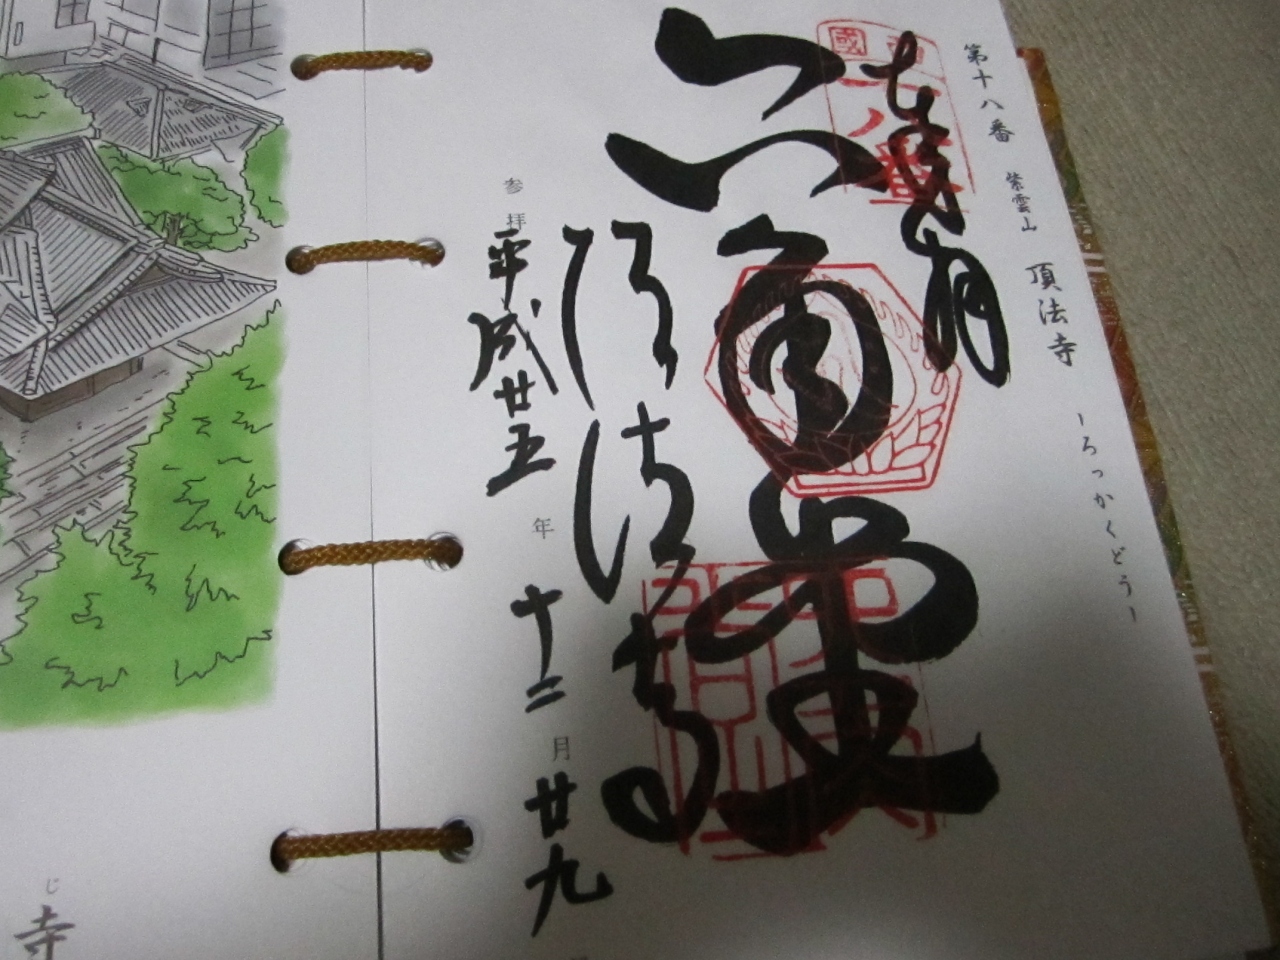 第十八番 紫雲山 頂法寺 －ろっかくどう－
奉拝
六角堂
頂法寺
参拝 平成廿五年十二月廿九
じ
寺